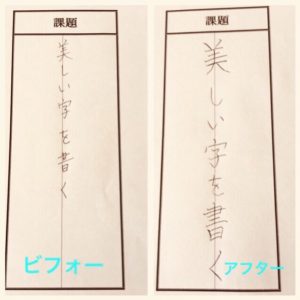 課題
美しい字を書く
ビフォー
課題
美しい字を書く
アフター